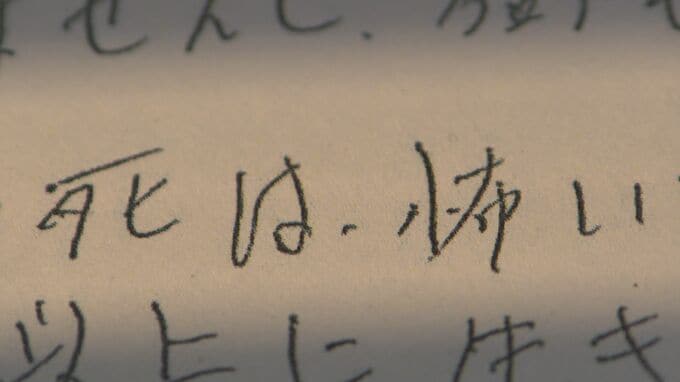 ませんし、
死は、怖い
以上に生き